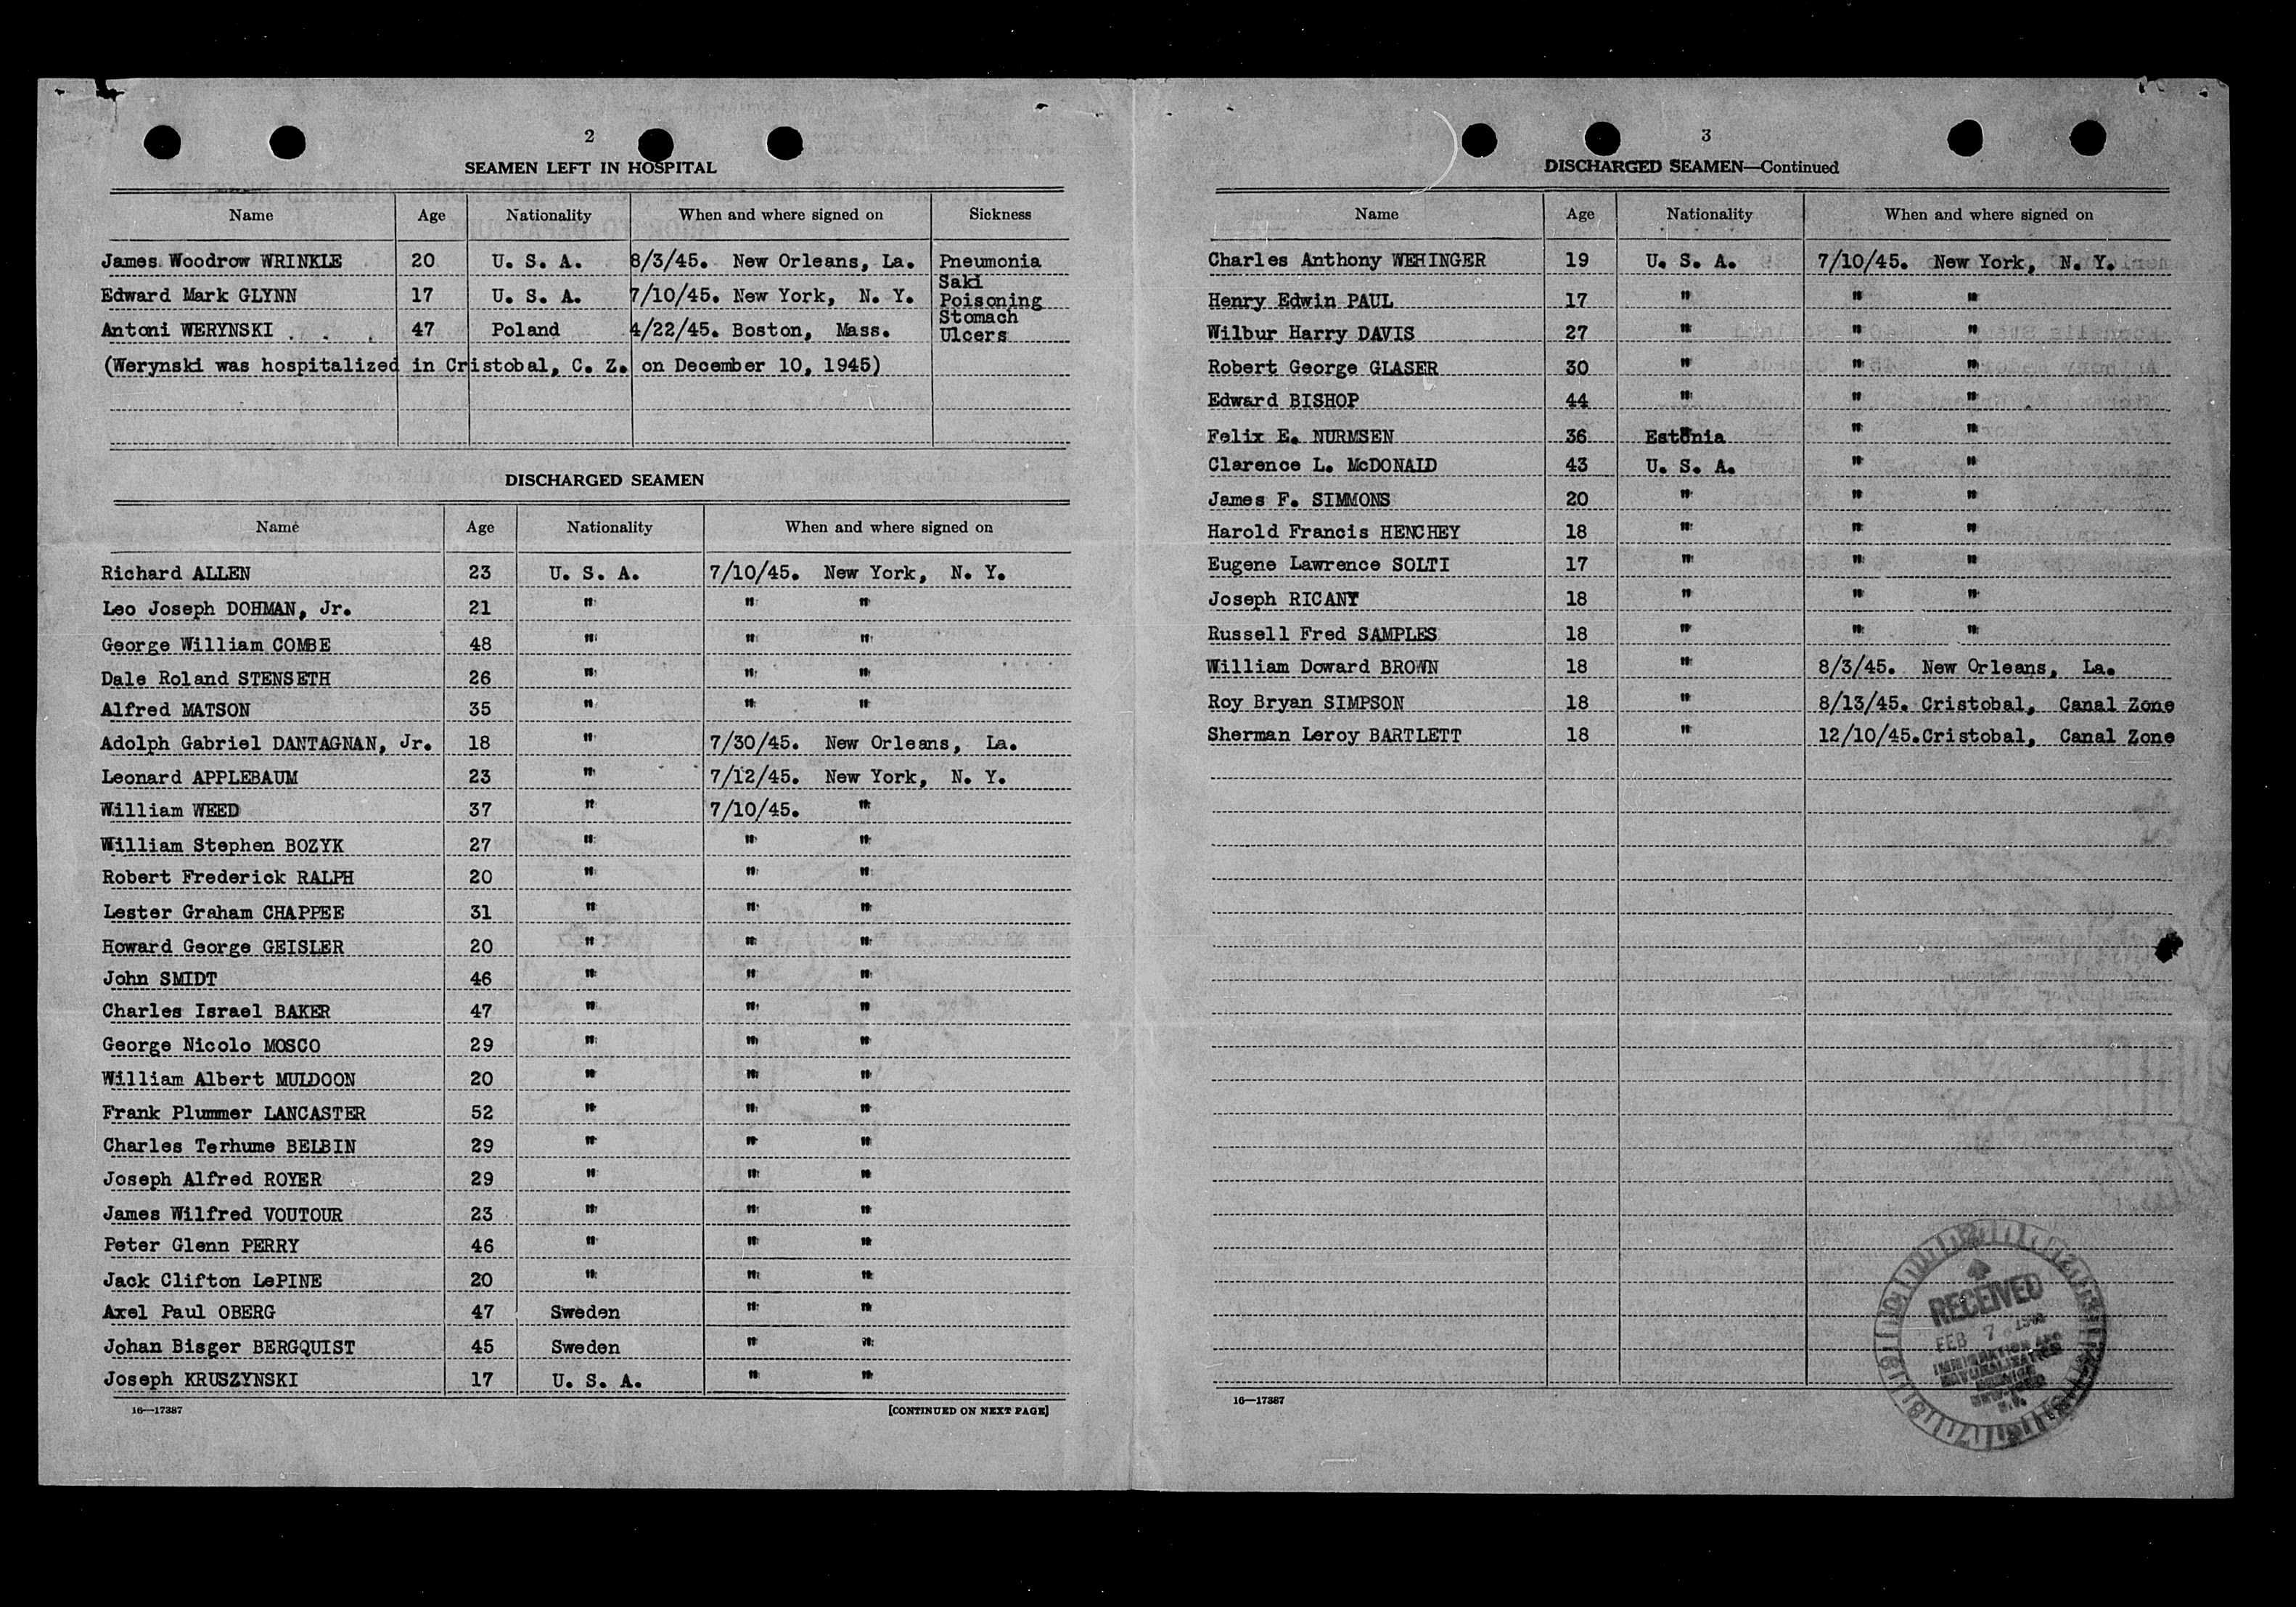 2
SEAMEN LEFT IN HOSPITAL
Name Age Nationality When and where signed on Sickness
James Woodrow WRINKLE 20 U. S. A. 8/3/45. New Orleans, La. Pneumonia
Edward Mark GLYNN 17 U. S. A. 7/10/45. New York, N. Y. Saki Poisoning
Antoni WERYNSKI . . . 47 Poland 4/22/45. Boston, Mass. Stomach Ulcers
(Werynski was hospitalized in Cristobal, C. Z. on December 10, 1945)
DISCHARGED SEAMEN
Name Age Nationality When and where signed on
Richard ALLEN 23 U. S. A. 7/10/45. New York, N. Y.
Leo Joseph DOHMAN, Jr. 21 " " "
George William COMBE 48 " " "
Dale Roland STENSETH 26 " " "
Alfred MATSON 35 " " "
Adolph Gabriel DANTAGNAN, Jr. 18 " 7/30/45. New Orleans, La.
Leonard APPLEBAUM 23 " 7/12/45. New York, N. Y.
William WEED 37 " 7/10/45. "
William Stephen BOZYK 27 " " "
Robert Frederick RALPH 20 " " "
Lester Graham CHAPPEE 31 " " "
Howard George GEISLER 20 " " "
John SMIDT 46 " " "
Charles Israel BAKER 47 " " "
George Nicolo MOSCO 29 " " "
William Albert MULDOON 20 " " "
Frank Plummer LANCASTER 52 " " "
Charles Terhume BELBIN 29 " " "
Joseph Alfred ROYER 29 " " "
James Wilfred VOUTOUR 23 " " "
Peter Glenn PERRY 46 " " "
Jack Clifton LePINE 20 " " "
Axel Paul OBERG 47 Sweden " "
Johan Bisger BERGQUIST 45 Sweden " "
Joseph KRUSZYNSKI 17 U. S. A. " "
16—17387 [CONTINUED ON NEXT PAGE]
3
DISCHARGED SEAMEN—Continued
Name Age Nationality When and where signed on
Charles Anthony WEHINGER 19 U. S. A. 7/10/45. New York, N. Y.
Henry Edwin PAUL 17 " " "
Wilbur Harry DAVIS 27 " " "
Robert George GLASER 30 " " "
Edward BISHOP 44 " " "
Felix E. NURMSEN 36 Estonia " "
Clarence L. McDONALD 43 U. S. A. " "
James F. SIMMONS 20 " " "
Harold Francis HENCHEY 18 " " "
Eugene Lawrence SOLTI 17 " " "
Joseph RICANY 18 " " "
Russell Fred SAMPLES 18 " " "
William Doward BROWN 18 " 8/3/45. New Orleans, La.
Roy Bryan SIMPSON 18 " 8/13/45. Cristobal, Canal Zone
Sherman Leroy BARTLETT 18 " 12/10/45.Cristobal, Canal Zone
16—17387
RECEIVED
FEB 7
IMMIGRATION AND
NATURALIZATION
SERVICE
N.Y.